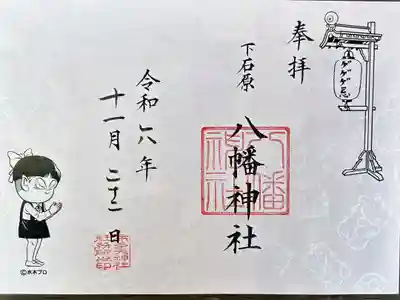 奉拝
下石原
八幡神社
令和六年
十一月二十二日
ゲゲゲ忌
八幡神社
©水木プロ